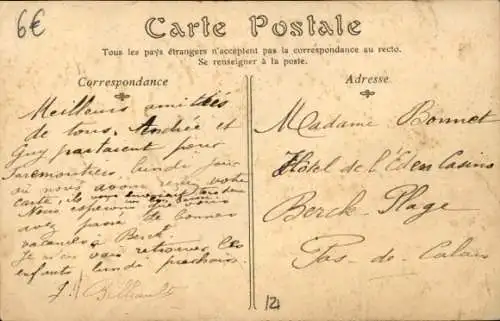 6€
Carte Postale
Tous les pays étrangers n'acceptent pas la correspondance au recto.
Se renseigner à la poste.
Correspondance
Meilleurs amitiés
de tous. Andrée et
Guy partaient pour
lundi jour
où nous avons reçu votre
carte, ils
Nous espérons que vous
avez passé de bonnes
vacances à Berck.
Je m'en vais retrouver les
enfants lundi prochain.
Adresse.
Madame Bonnet
Hôtel de l'Eden Casino
Berck-Plage
Pas-de-Calais
12